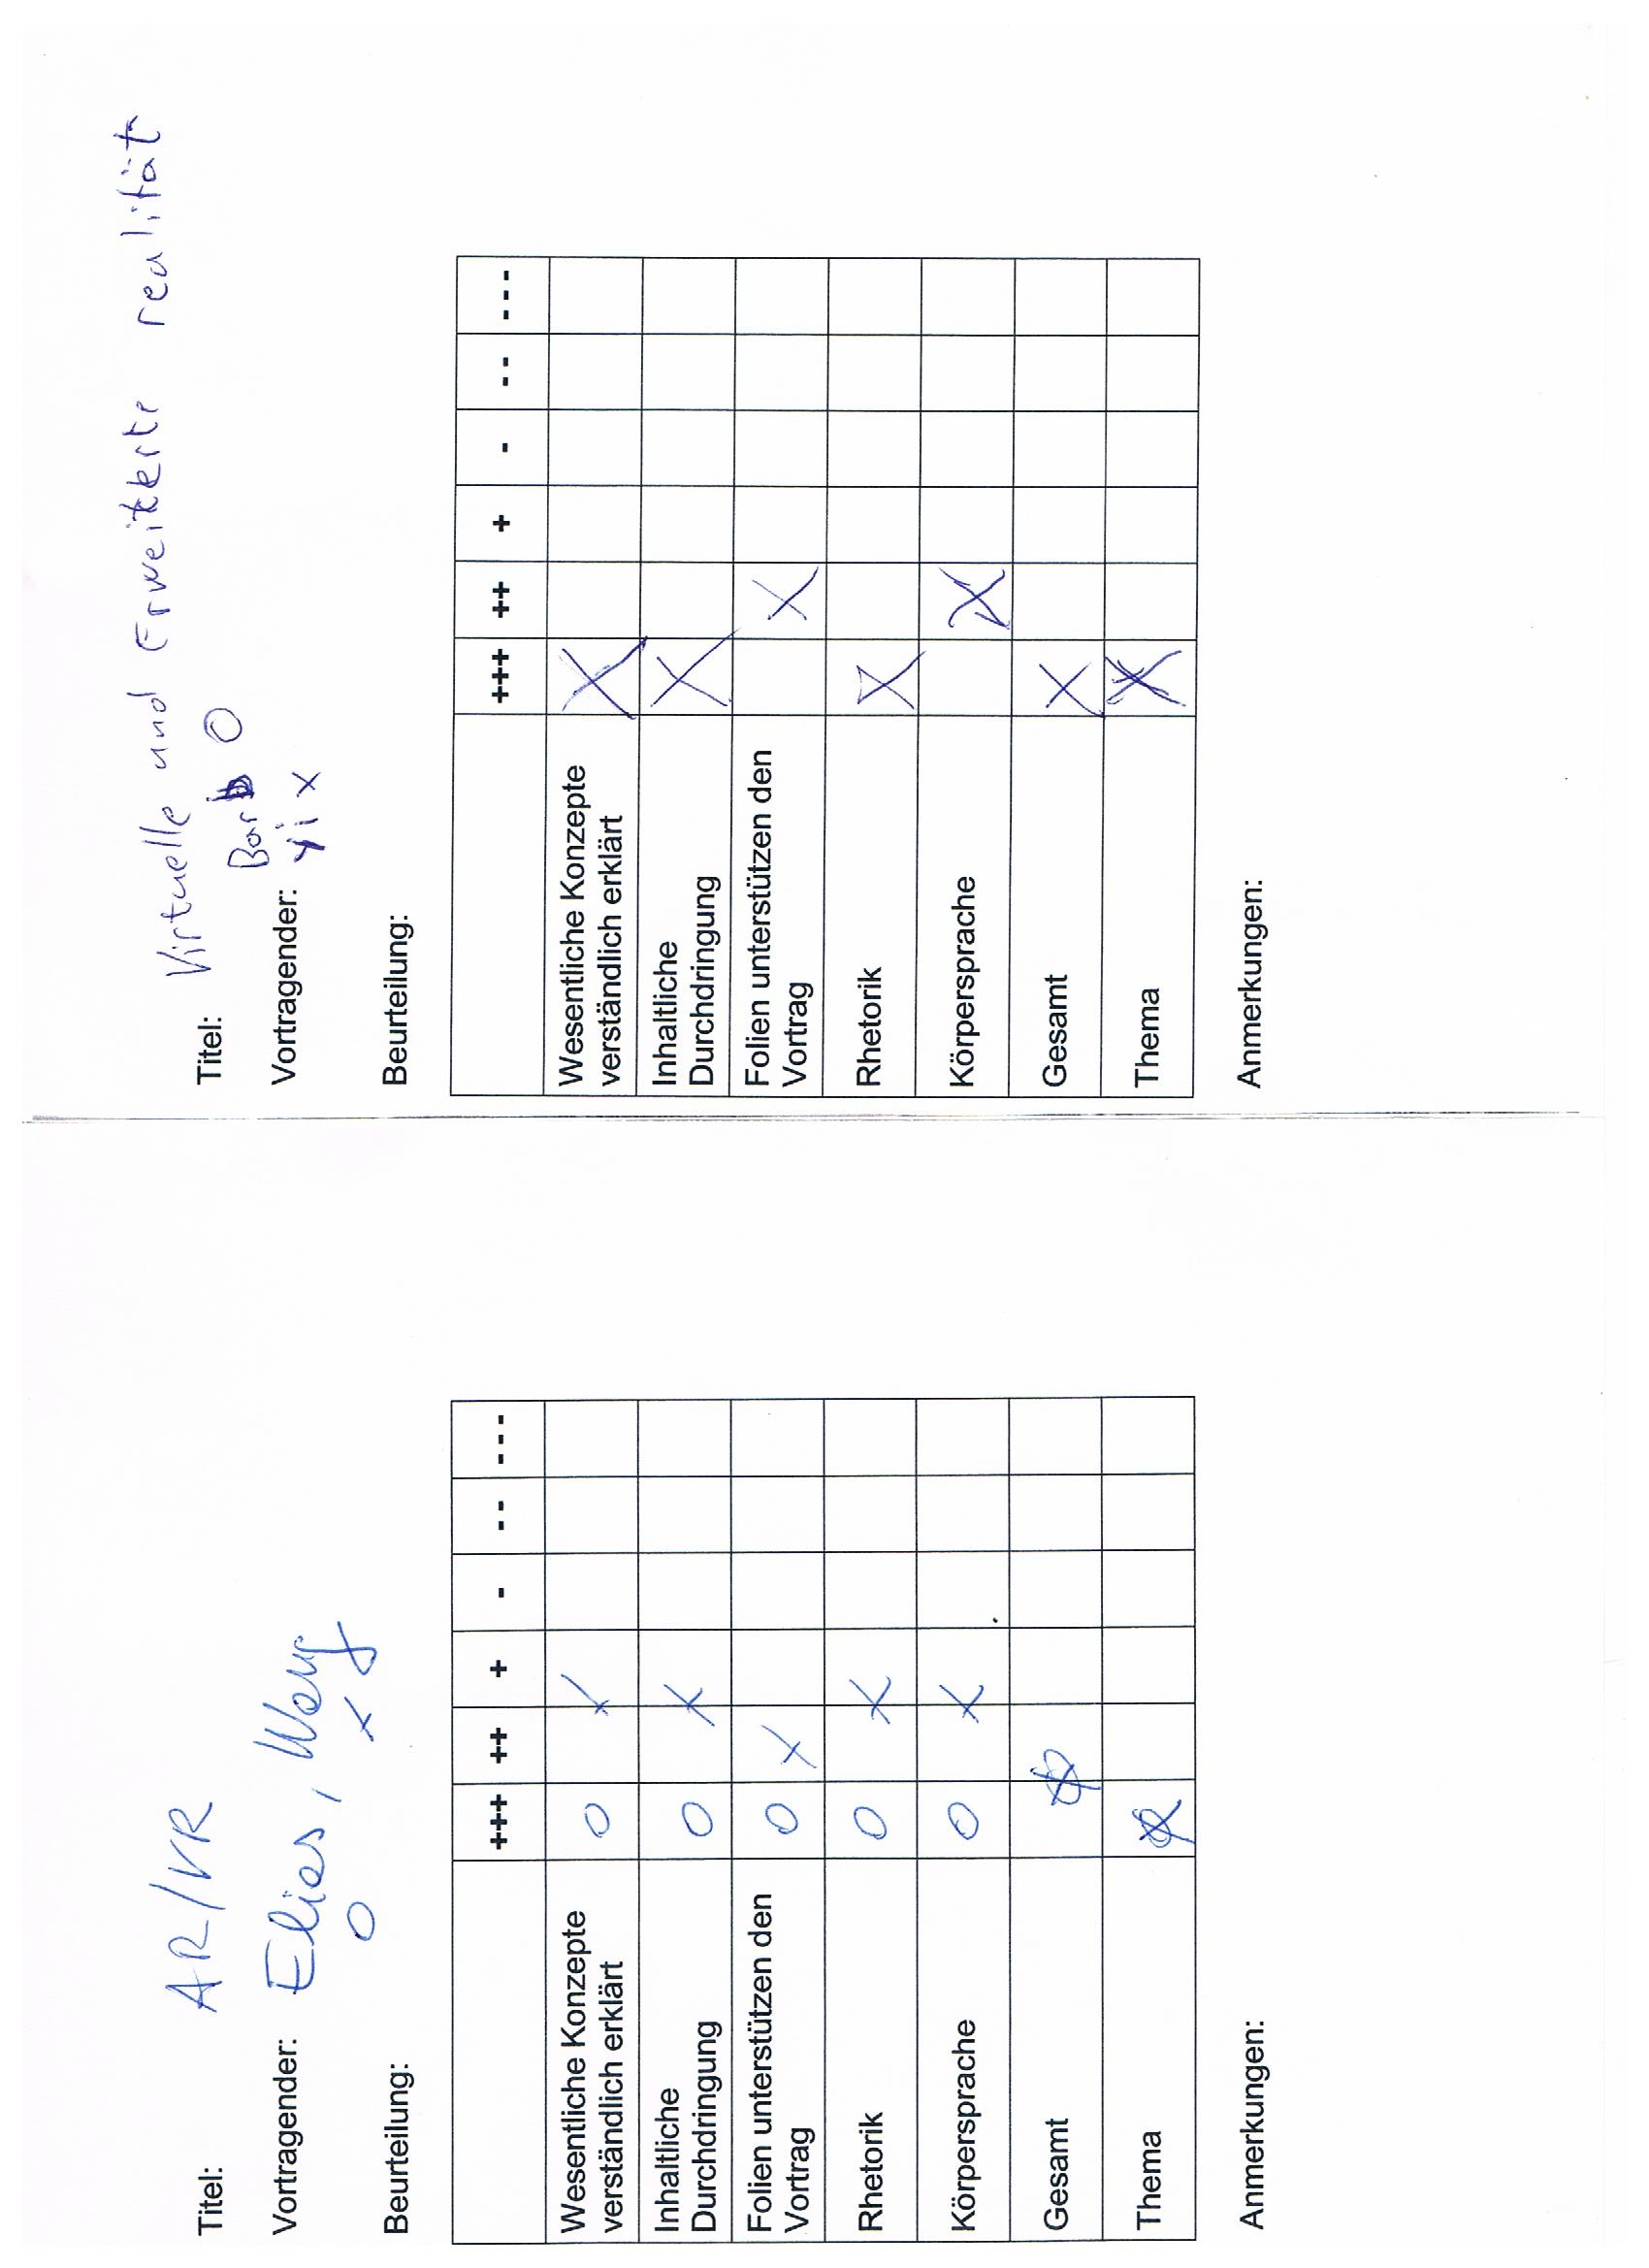 Titel: AR/VR
Vortragender: Elias, Wang
O x
Beurteilung:
+++ ++ + - -- ---
Wesentliche Konzepte
verständlich erklärt O x
Inhaltliche
Durchdringung O x
Folien unterstützen den
Vortrag O x
Rhetorik O x
Körpersprache O x
Gesamt O x
Thema O x
Anmerkungen:
Virtuelle und Erweiterte realität
Titel:
O
Vortragender: yi x
Beurteilung:
+++ ++ + - -- ---
Wesentliche Konzepte
verständlich erklärt X
Inhaltliche
Durchdringung X
Folien unterstützen den
Vortrag X
Rhetorik X
Körpersprache X
Gesamt X
Thema X
Anmerkungen: